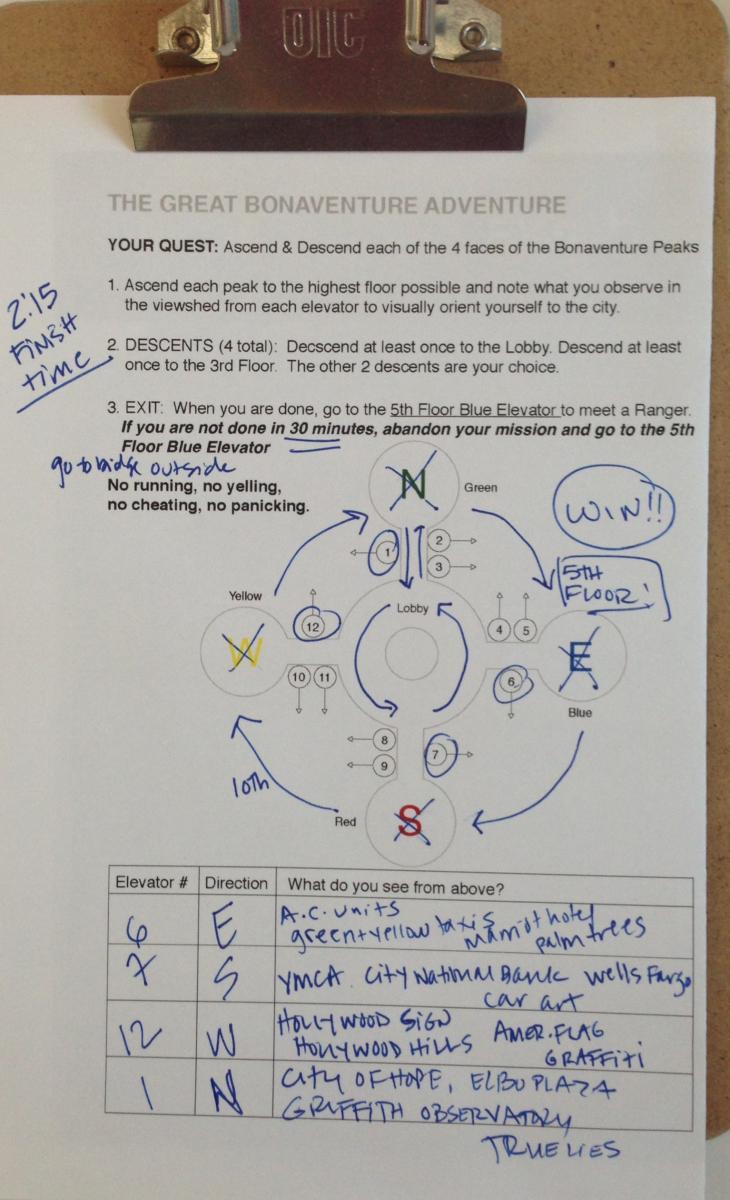 OIC
THE GREAT BONAVENTURE ADVENTURE
YOUR QUEST: Ascend & Descend each of the 4 faces of the Bonaventure Peaks
1. Ascend each peak to the highest floor possible and note what you observe in
the viewshed from each elevator to visually orient yourself to the city.
2:15
FINISH
time
2. DESCENTS (4 total): Decscend at least once to the Lobby. Descend at least
once to the 3rd Floor. The other 2 descents are your choice.
3. EXIT: When you are done, go to the 5th Floor Blue Elevator to meet a Ranger.
If you are not done in 30 minutes, abandon your mission and go to the 5th
Floor Blue Elevator
go to bridge outside
No running, no yelling,
no cheating, no panicking.
N
Green
WIN!!
1
2
3
5TH
FLOOR!
Yellow
Lobby
12
4
5
W
E
10
11
6
Blue
8
7
9
10th
Red
S
Elevator # Direction What do you see from above?
6 E A.C. units
green+yellow taxis marriot hotel
palm trees
7 S YMCA City National Bank Wells Fargo
car art
12 W HOLLYWOOD SIGN
HOLLYWOOD HILLS AMER. FLAG
GRAFFITI
1 N CITY OF HOPE, ELBU PLAZA
GRIFFITH OBSERVATORY
TRUE LIES